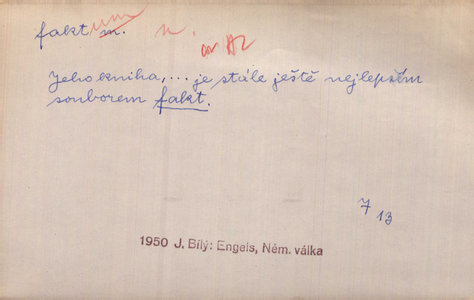 fakt m.
n.
Jeho kniha, ... je stále ještě nejlepším
souborem fakt.
7 13
1950 J. Bílý: Engels, Něm. válka